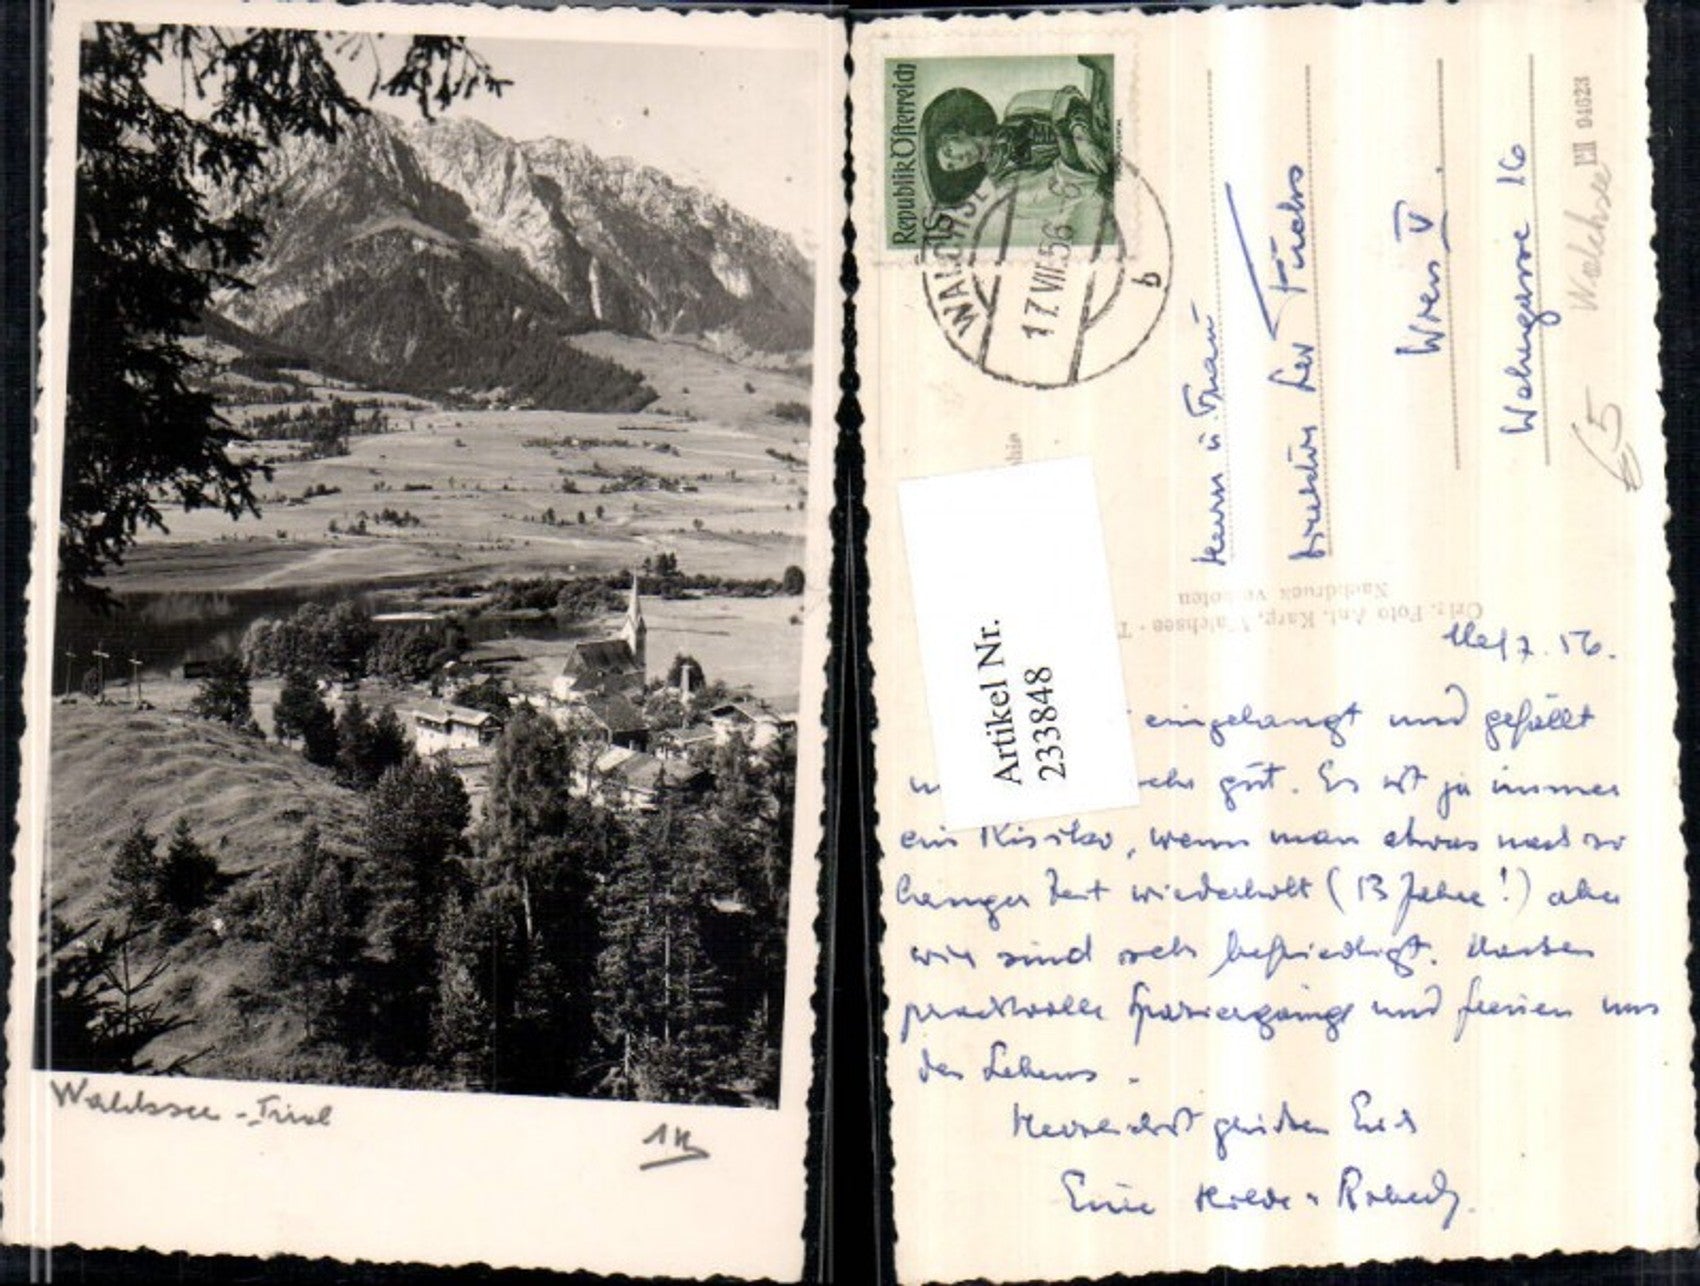 Walchsee - Tirol
AK
Republik Österreich
WALCHSEE
17.VII.56
b
Herrn u. Frau
Direktor Leo Fuchs
Wien V.
Wehrgasse 16
Walchsee
04623
€5
Orig. Foto Ant. Karg, Walchsee - T
Nachdruck verboten
Artikel Nr.
233848
7. 56.
eingelangt und gefällt
sehr gut. Es ist ja immer
ein Risiko, wenn man etwas nach so
langer Zeit wiederholt (13 Jahre!) aber
wir sind sehr befriedigt. Machen
prachtvolle Spaziergänge und freuen uns
des Lebens.
Herzlichst grüssen Euch
Eure Hilde u. Robert